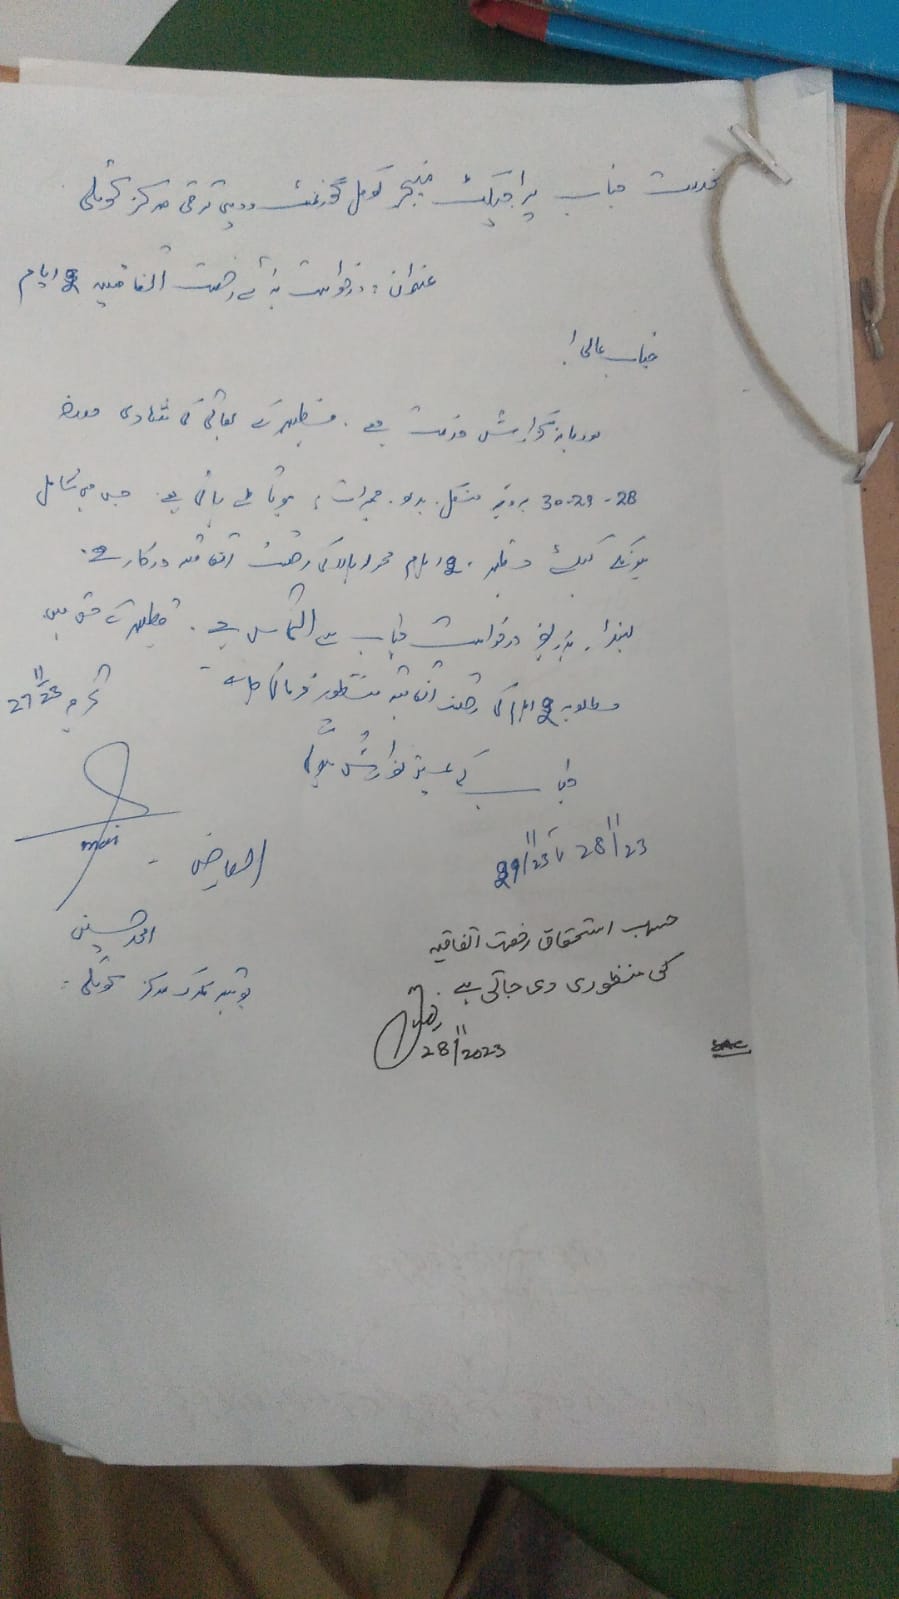 بخدمت جناب پراجیکٹ منیجر لوکل گورنمنٹ و دیہی ترقی مرکز
عنوان : درخواست برائے رخصت اتفاقیہ 2 ایام
جناب عالی!
مودبانہ گزارش خدمت ہے۔ مظہر کے بھائی کی شادی مورخہ
28-29-30 بروز منگل، بدھ، جمعرات، ہونا طے پائی ہے۔ جس میں شامل
ہونے کیلئے مظہر 2 ایام کی رخصت اتفاقیہ درکار ہے۔
لہذا بذریعہ درخواست جناب سے التماس ہے۔ مظہر کے حق میں
مطلوبہ 2 ایام کی رخصت اتفاقیہ منظور فرمائی جائے
27/11/23
جناب کی عین نوازش ہوگی
28/11/23 تا 29/11/23
العارض
حسب استحقاق رخصت اتفاقیہ
کی منظوری دی جاتی ہے۔
28/11/2023